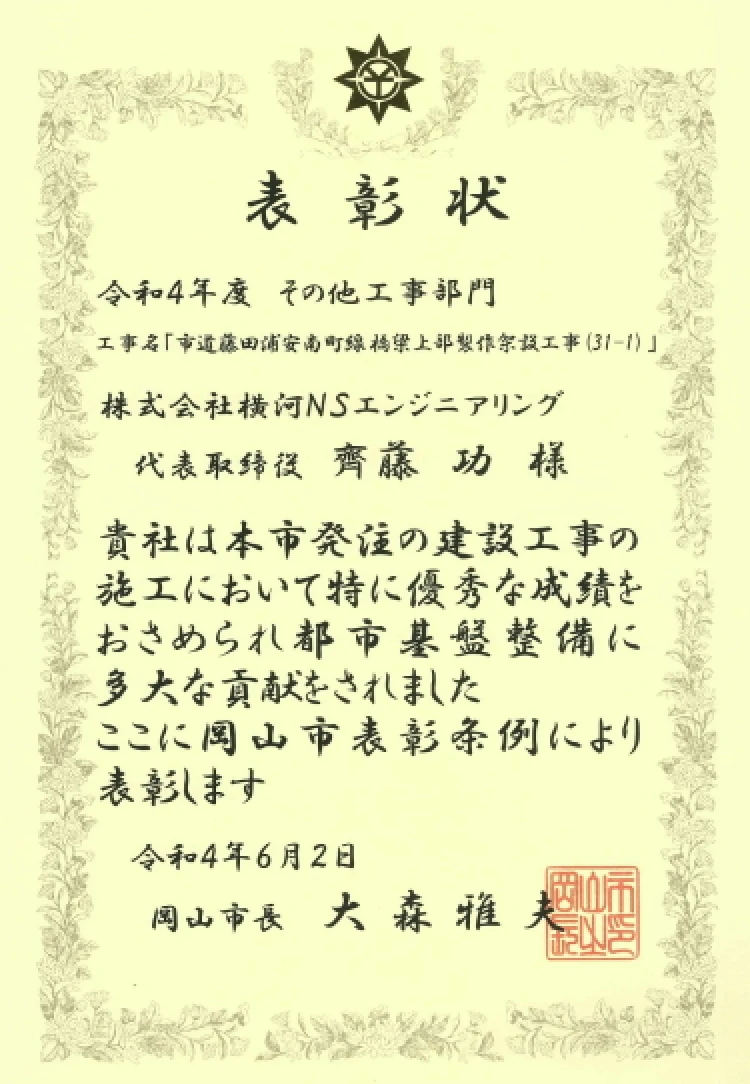 表彰状
令和4年度 その他工事部門
工事名「市道藤田浦安南町線橋梁上部製作架設工事(31-1)」
株式会社横河NSエンジニアリング
代表取締役 齊藤 功 様
貴社は本市発注の建設工事の
施工において特に優秀な成績を
おさめられ都市基盤整備に
多大な貢献をされました
ここに岡山市表彰条例により
表彰します
令和4年6月2日
岡山市長 大森雅夫
岡山市長之印